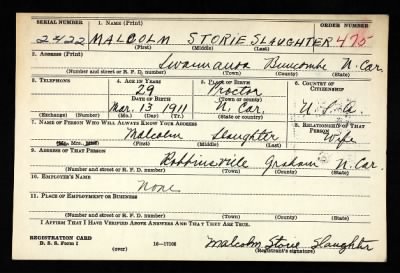 SERIAL NUMBER 1. NAME (Print) ORDER NUMBER
2422 MALCOLM STORIE SLAUGHTER 475
(First) (Middle) (Last)
2. ADDRESS (Print)
Swannanoa Buncombe N. Car.
(Number and street or R. F. D. number) (Town) (County) (State)
3. TELEPHONE 4. AGE IN YEARS 5. PLACE OF BIRTH 6. COUNTRY OF CITIZENSHIP
29 Proctor
DATE OF BIRTH
Mar. 13 1911 N. Car. U. S. A.
(Exchange) (Number) (Mo.) (Day) (Yr.) (Town or county) (State or country)
7. NAME OF PERSON WHO WILL ALWAYS KNOW YOUR ADDRESS 8. RELATIONSHIP OF THAT PERSON
Malcolm Slaughter Wife
Mrs. (First) (Middle) (Last)
9. ADDRESS OF THAT PERSON
Robbinsville Graham N. Car.
(Number and street or R. F. D. number) (Town) (County) (State)
10. EMPLOYER'S NAME
None
11. PLACE OF EMPLOYMENT OR BUSINESS
(Number and street or R. F. D. number) (Town) (County) (State)
I AFFIRM THAT I HAVE VERIFIED ABOVE ANSWERS AND THAT THEY ARE TRUE.
REGISTRATION CARD
D. S. S. Form 1 (over) 16—17105 Malcolm Storie Slaughter
(Registrant's signature)